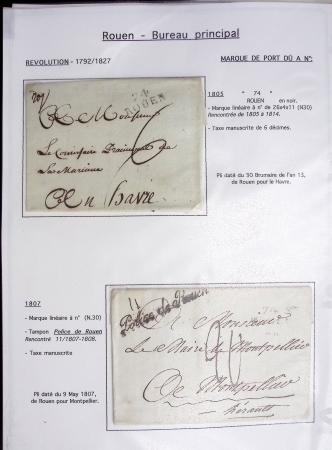 Rouen - Bureau principal
REVOLUTION - 1792/1827
MARQUE DE PORT DÛ A N°:
1805 " 74 "
ROUEN en noir.
- Marque linéaire à n° de 26x4x11 (N30)
Rencontrée de 1805 à 1814.
- Taxe manuscrite de 6 décimes.
Pli daté du 30 Brumaire de l'an 13,
de Rouen pour le Havre.
74
ROUEN
A Monsieur
Le Commissaire
La Marine
Au havre
1807
- Marque linéaire à n° (N.30)
- Tampon Police de Rouen
Rencontré 11/1807-1808.
- Taxe manuscrite
Pli daté du 9 May 1807,
de Rouen pour Montpellier.
Police de Rouen
A Monsieur
Le Maire de Montpellier
De Montpellier
hérault